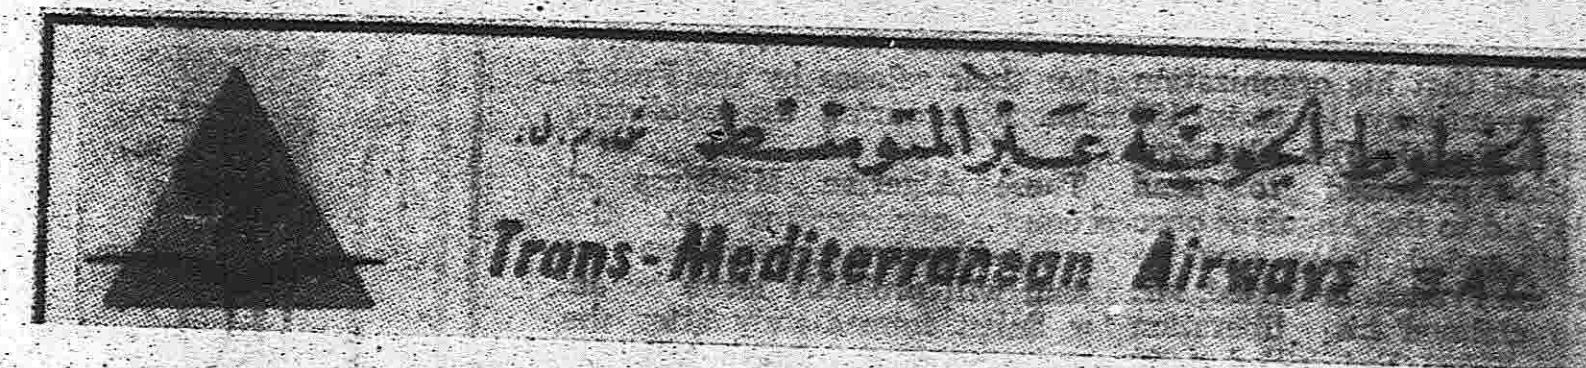 الخطوط الجوية عبر المتوسط ش.م.ل.
Trans-Mediterranean Airways S.A.L.